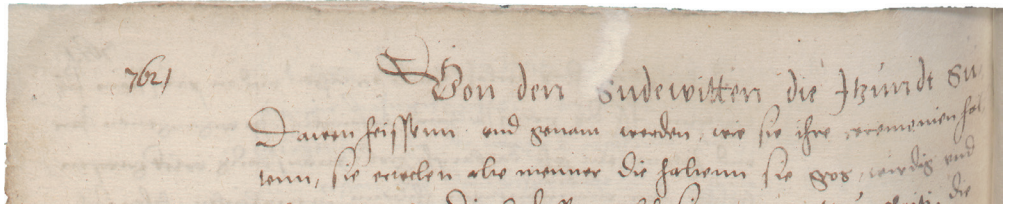 762,
Von den Sudewitten die Itzundt Su
dawen heissenn und genant werden, wie sie ihre ceremonien hal
tenn, sie erwelen alte menner die haltenn sie gros, wirdig und
die